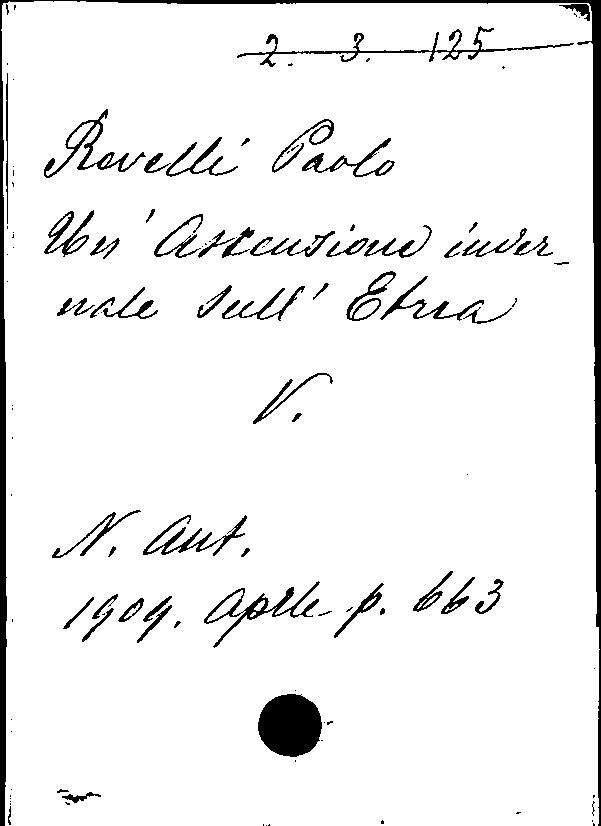 2. 3. 125
Revelli Paolo
Un' Ascensione inver-
nale sull' Etna
V.
N. Ant.
1909. Aprile p. 663